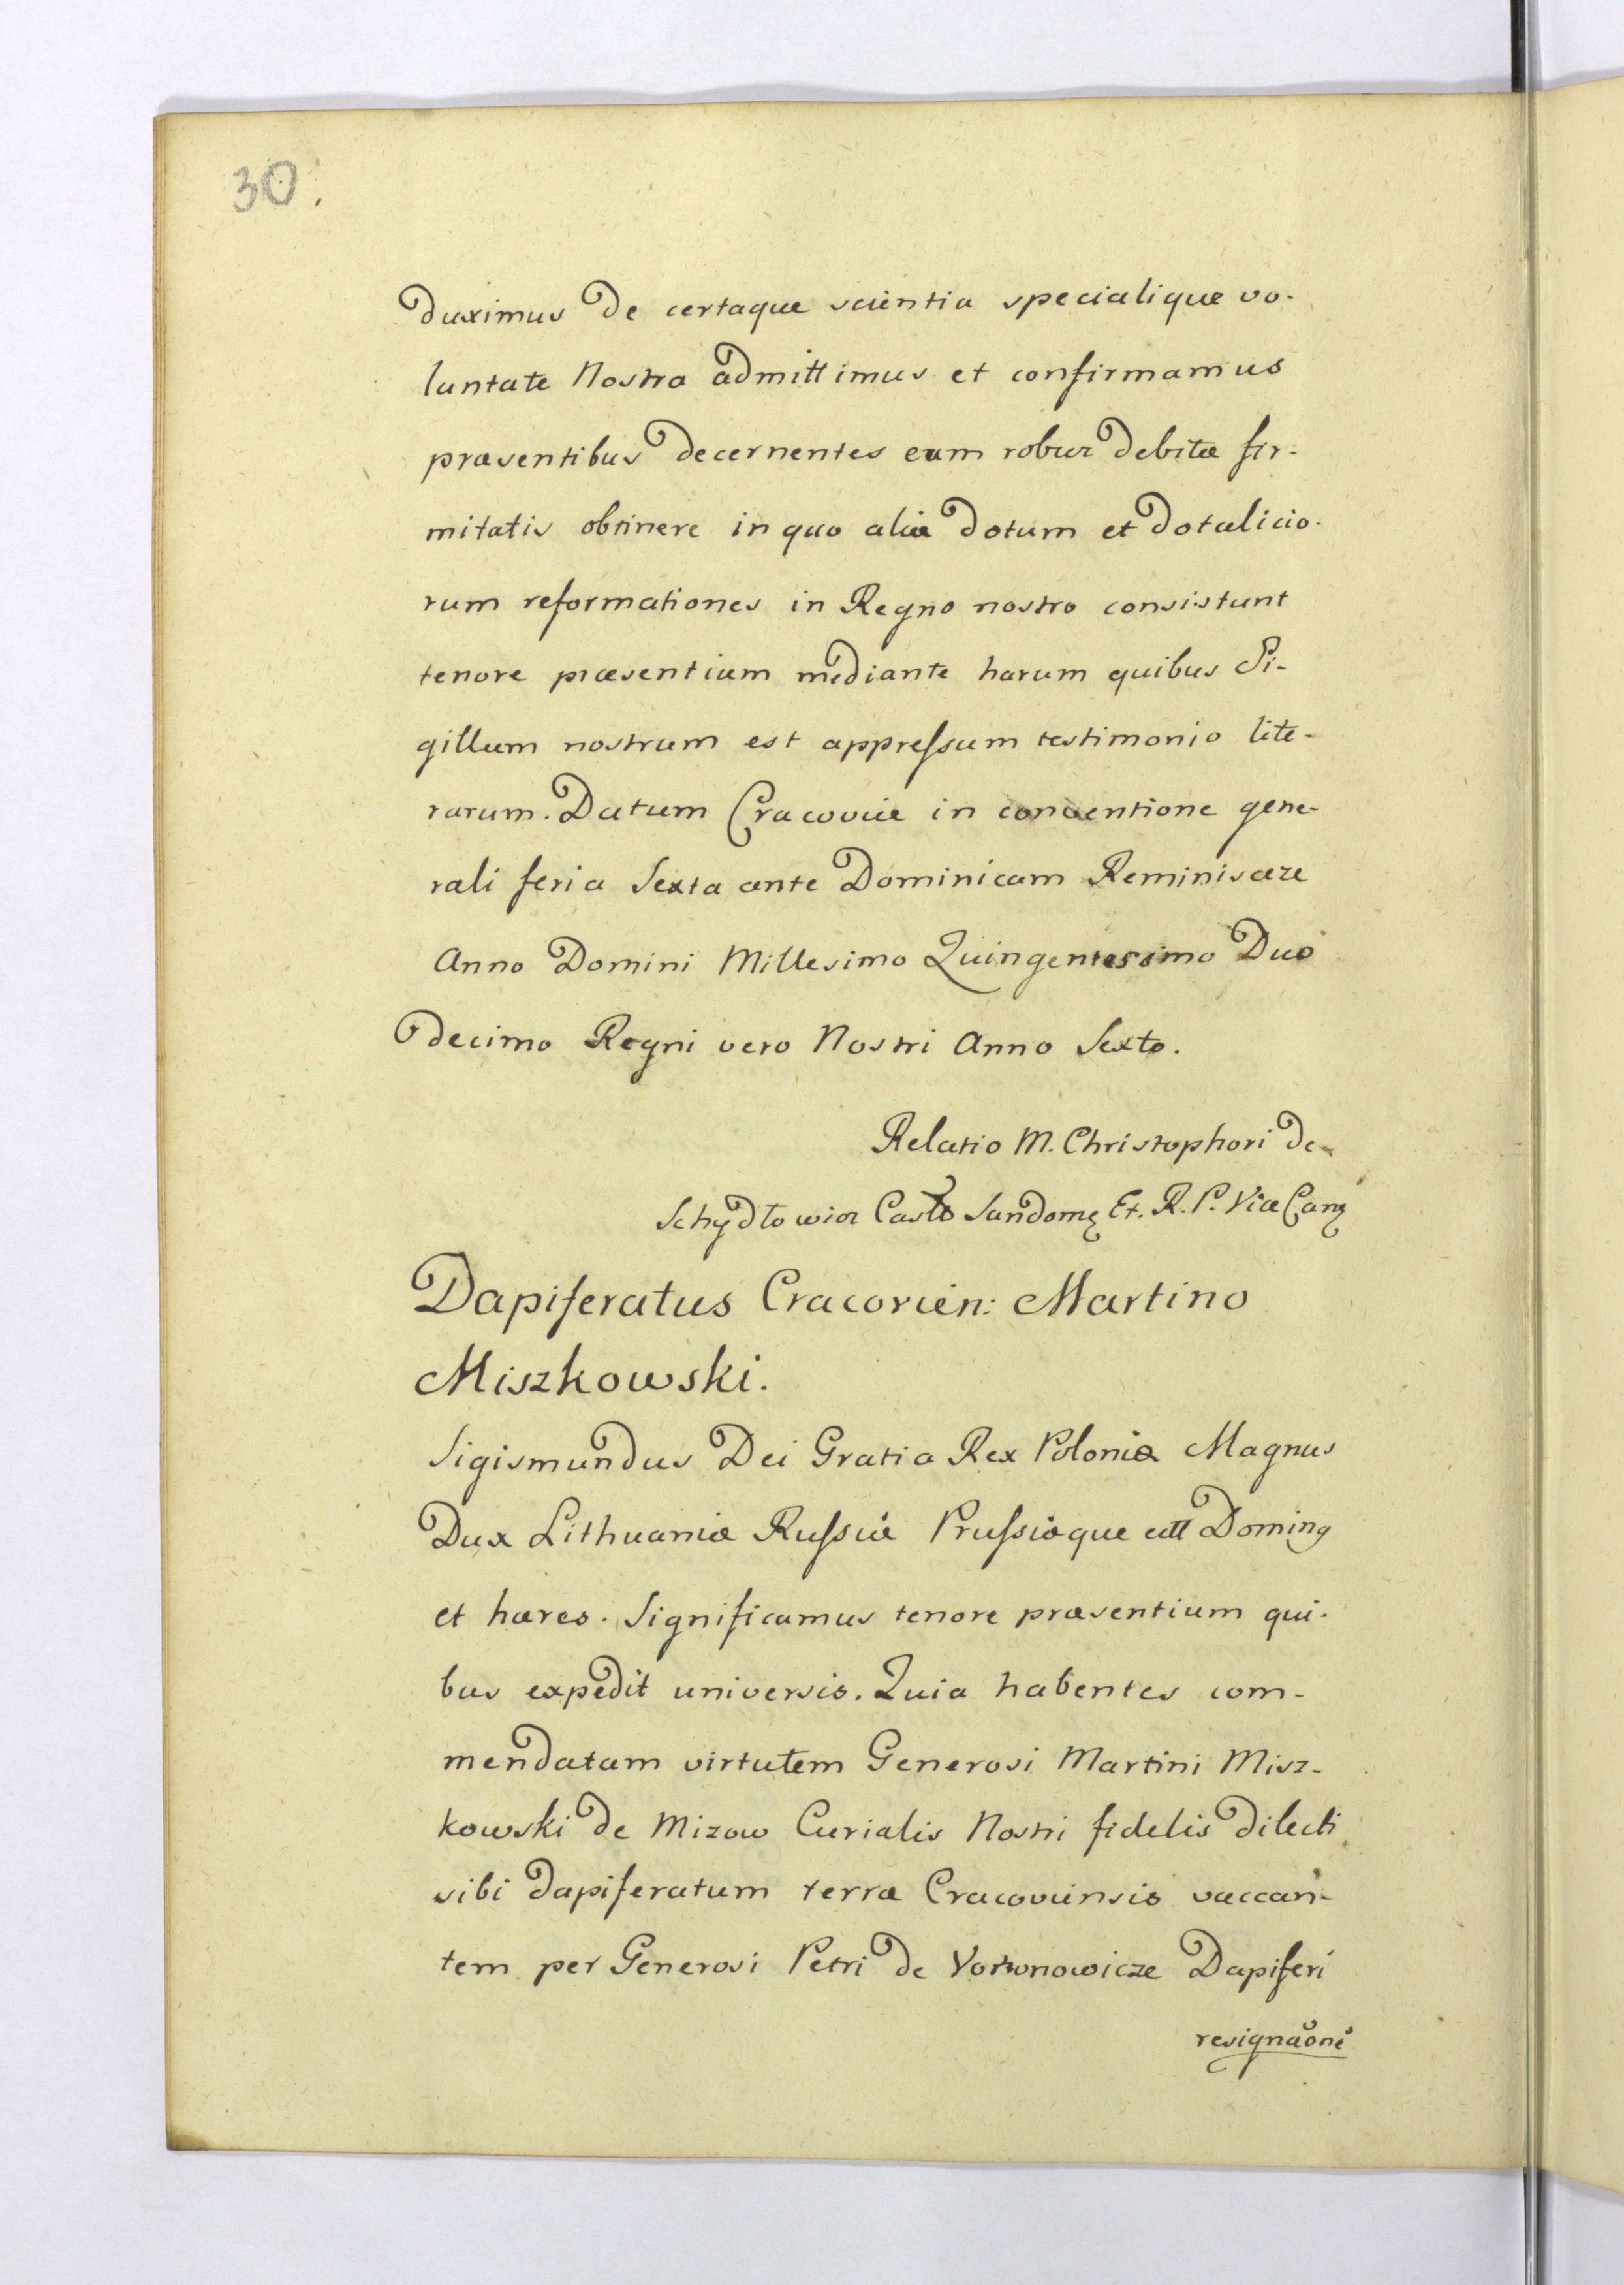 30.
duximus de certaque scientia specialique vo-
luntate Nostra admittimus et confirmamus
præsentibus decernentes eam robur debitæ fir-
mitatis obtinere in quo aliæ dotum et dotalicio-
rum reformationes in Regno nostro consistunt
tenore præsentium mediante harum quibus Si-
gillum nostrum est appressum testimonio lite-
rarum. Datum Cracoviæ in conventione gene-
rali feria Sexta ante Dominicam Reminiscere
Anno Domini Millesimo Quingentesimo Duo
decimo Regni vero Nostri Anno Sexto.
Relatio M. Christophori de
Schydłowicz Sandom Et. R. P. Vice Canz
Dapiferatus Cracovien: Martino
Miszkowski.
Sigismundus Dei Gratia Rex Poloniæ Magnus
Dux Lithuaniæ Russiæ Prussiæque ett Doming
et hæres. Significamus tenore præsentium qui-
bus expedit universis. Quia habentes com-
mendatam virtutem Generosi Martini Misz-
kowski de Mizow Curialis Nostri fidelis dilecti
sibi dapiferatum terræ Cracoviensis vaccan-
tem per Generosi Petri de Dapiferi
resignaone